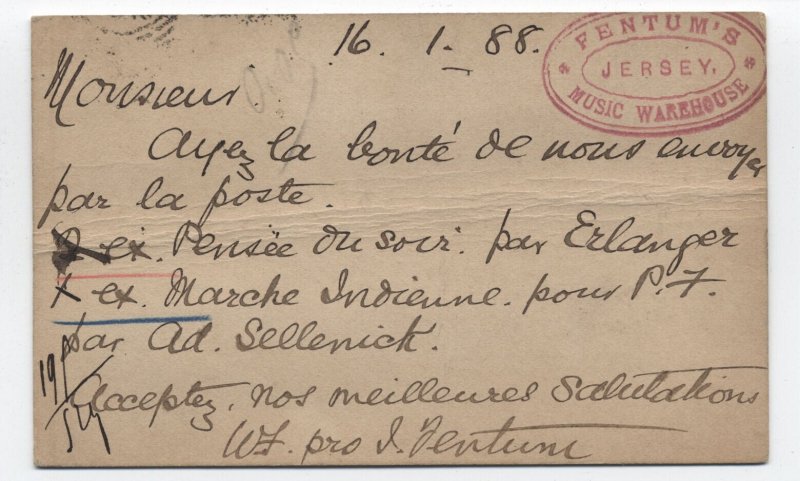 16. 1. 88.
FENTUM'S
JERSEY,
MUSIC WAREHOUSE
Monsieur.
Ayez la bonté de nous envoyer
par la poste.
ex. Pensée du soir. par Erlanger
ex. Marche Indienne. pour P.F.
par Ad. Sellenick.
Acceptez. nos meilleures salutations
pro J. Fentum